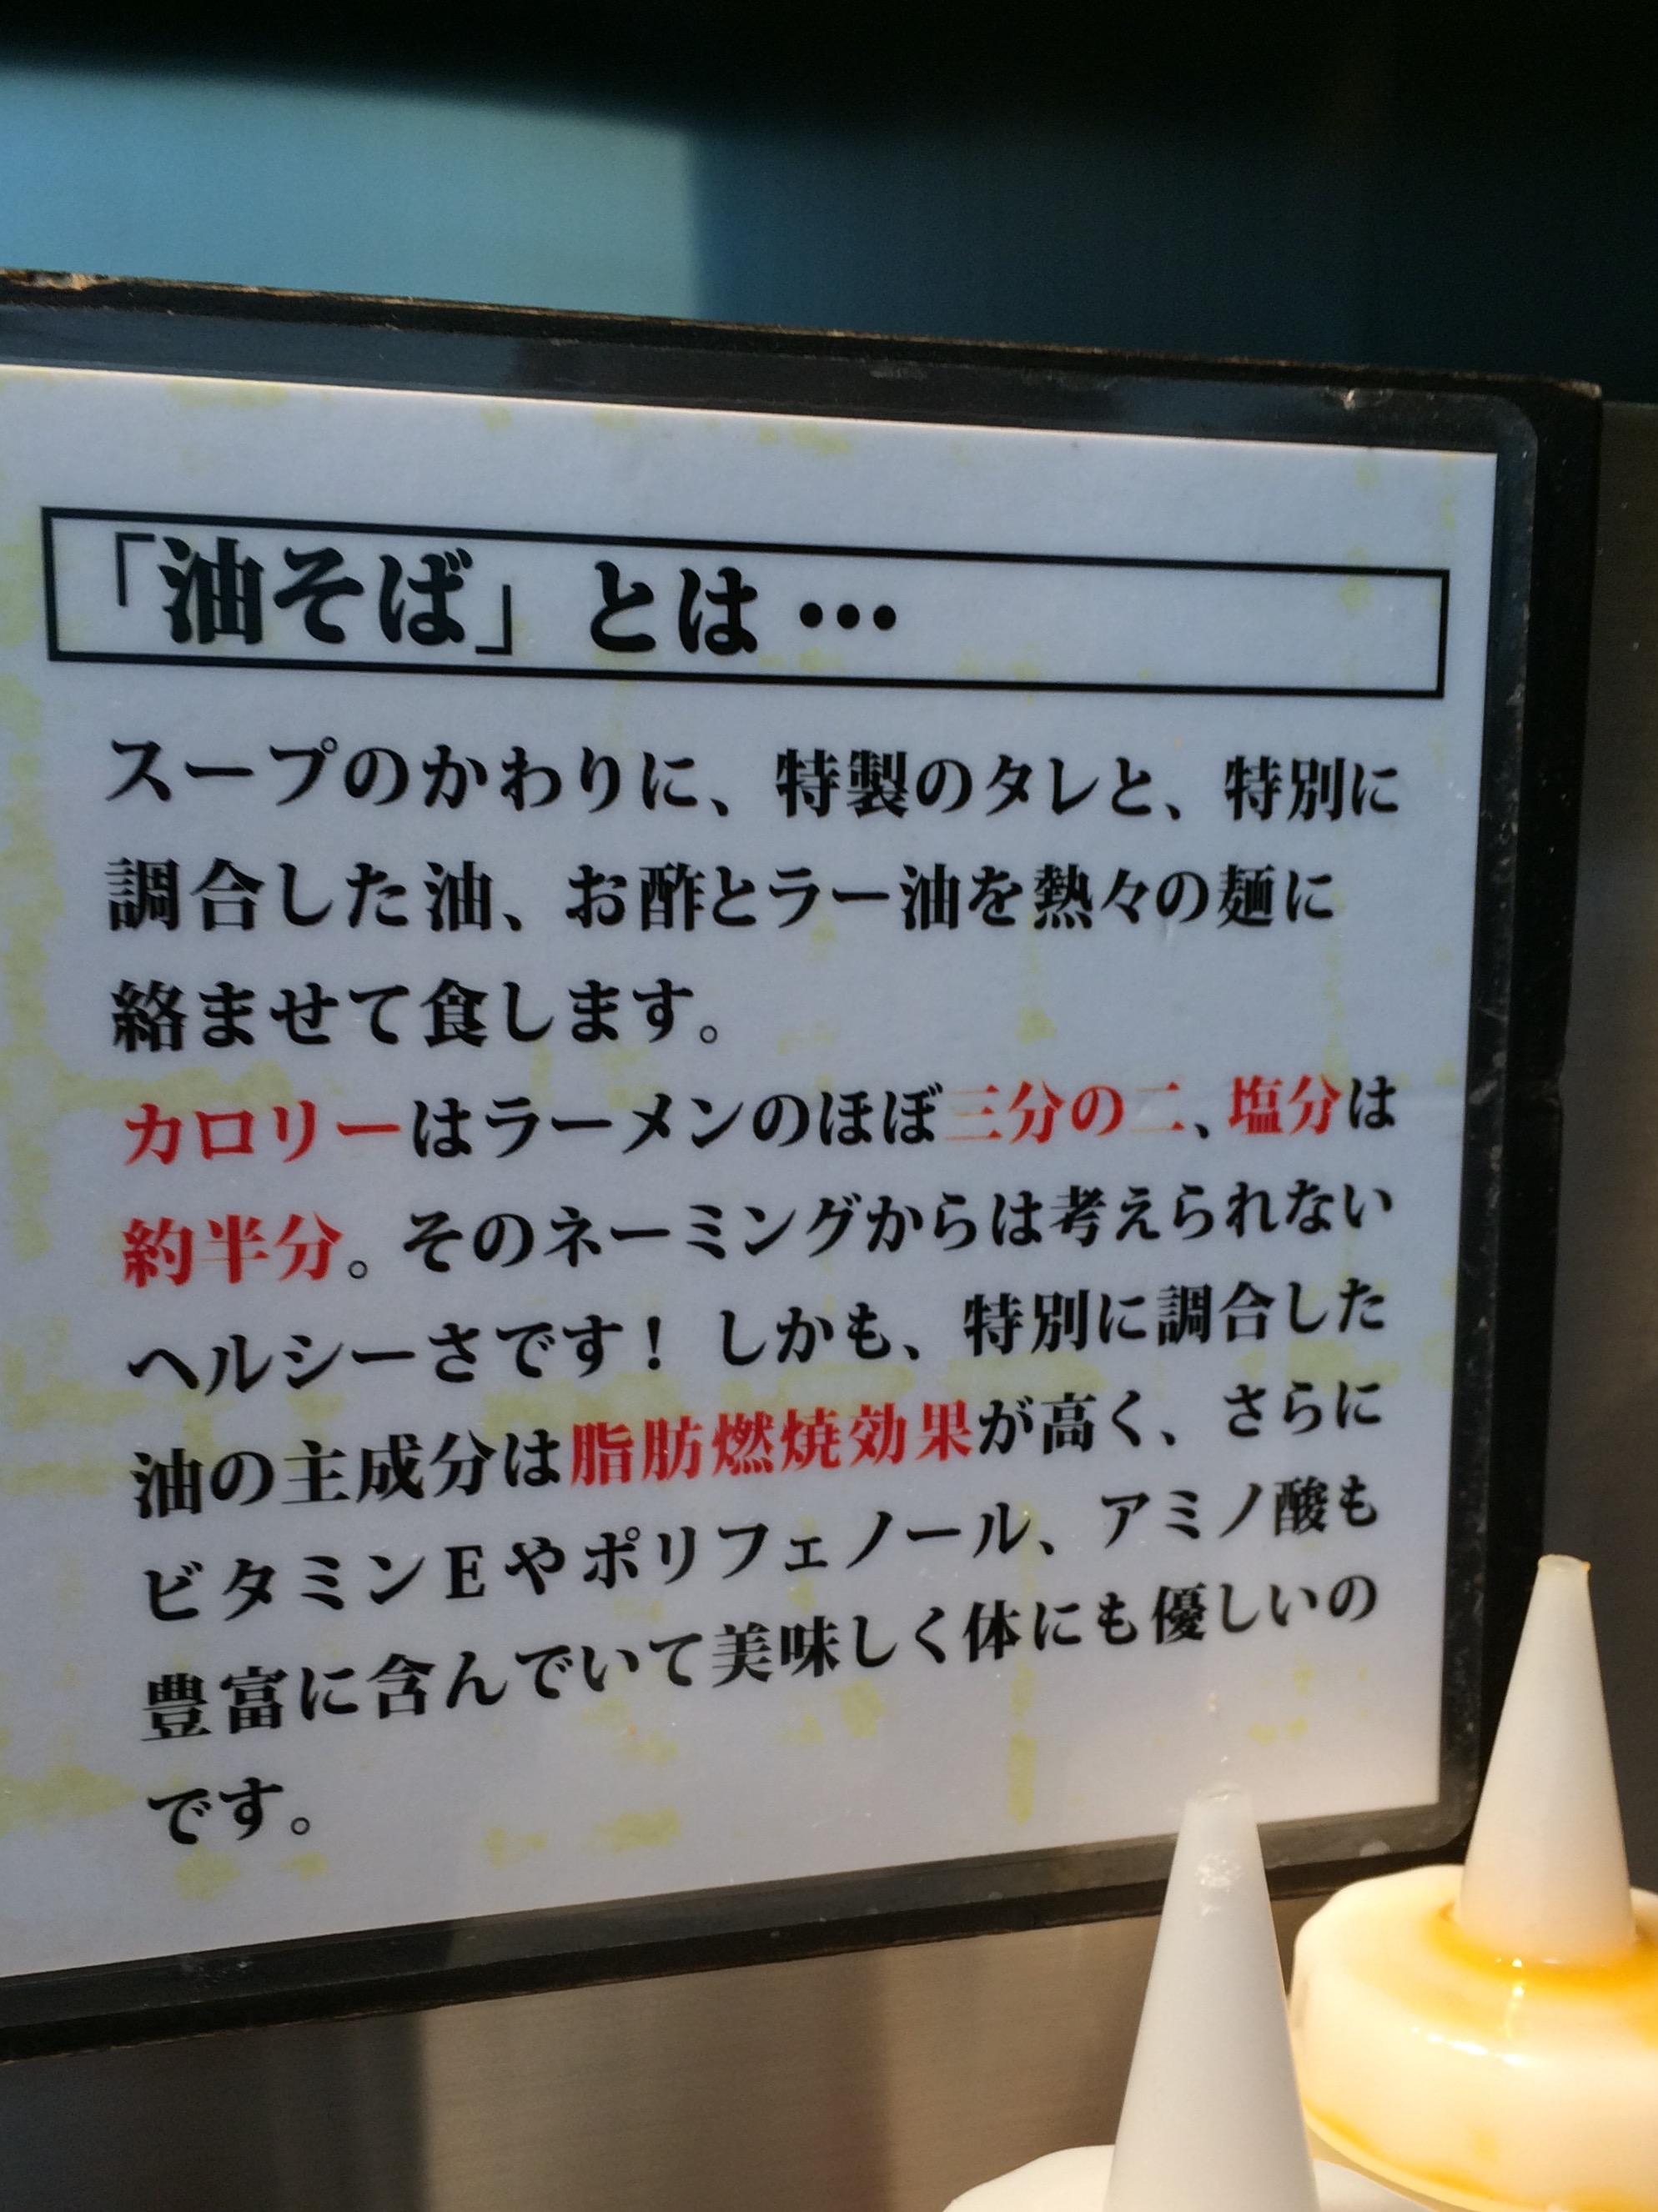 「油そば」とは…
スープのかわりに、特製のタレと、特別に
調合した油、お酢とラー油を熱々の麺に
絡ませて食します。
カロリーはラーメンのほぼ三分の二、塩分は
約半分。そのネーミングからは考えられない
ヘルシーさです！しかも、特別に調合した
油の主成分は脂肪燃焼効果が高く、さらに
ビタミンEやポリフェノール、アミノ酸も
豊富に含んでいて美味しく体にも優しいの
です。